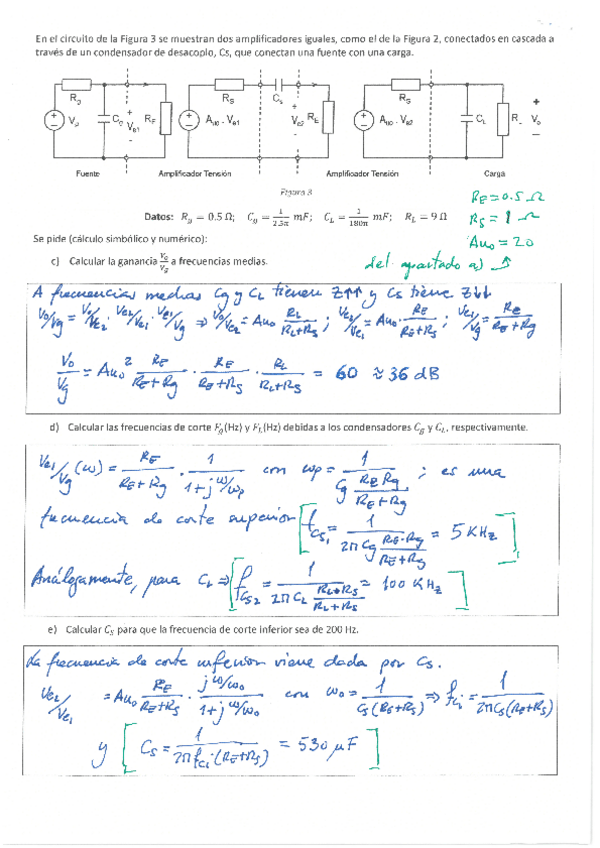 En el circuito de la Figura 3 se muestran dos amplificadores iguales, como el de la Figura 2, conectados en cascada a
través de un condensador de desacoplo, Cs, que conectan una fuente con una carga.
R_g R_S C_s R_S
V_g C_g V_e1 R_E A_uo · V_e1 V_e2 R_E A_uo · V_e2 C_L R_L V_o
Fuente Amplificador Tensión Amplificador Tensión Carga
Figura 3
R_E=0.5 Ω
Datos: R_g = 0.5 Ω; C_g = 1/2.5π mF; C_L = 1/180π mF; R_L = 9 Ω
R_S = 1 Ω
A_uo = 20
Se pide (cálculo simbólico y numérico):
c) Calcular la ganancia V_o/V_g a frecuencias medias.
del apartado a)
A frecuencias medias Cg y CL tienen Z↑↑ y Cs tiene Z↓↓
Vo/Vg = Vo/Ve2 · Ve2/Ve1 · Ve1/Vg ⇒ Vo/Ve2 = Auo RL/(RL+RS) ; Ve2/Ve1 = Auo · RE/(RE+RS) ; Ve1/Vg = RE/(RE+Rg)
Vo/Vg = Auo² RE/(RE+Rg) · RE/(RE+RS) · RL/(RL+RS) = 60 ≈ 36 dB
d) Calcular las frecuencias de corte F_g(Hz) y F_L(Hz) debidas a los condensadores C_g y C_L, respectivamente.
Ve1/Vg (ω) = RE/(RE+Rg) · 1/(1+j ω/ωp) con ωp = 1/(Cg RE Rg/(RE+Rg)) ; es una
frecuencia de corte superior [f_cs1 = 1/(2π Cg RE·Rg/(RE+Rg)) = 5 KHz]
Análogamente, para CL ⇒ [f_cs2 = 1/(2π CL RL·RS/(RL+RS)) = 100 KHz]
e) Calcular C_S para que la frecuencia de corte inferior sea de 200 Hz.
La frecuencia de corte inferior viene dada por Cs.
Ve2/Ve1 = Auo RE/(RE+RS) · (j ω/ωo)/(1+j ω/ωo) con ωo = 1/(Cs(RE+RS)) ⇒ f_ci = 1/(2π Cs(RE+RS))
y [Cs = 1/(2π f_ci·(RE+RS)) = 530 μF]